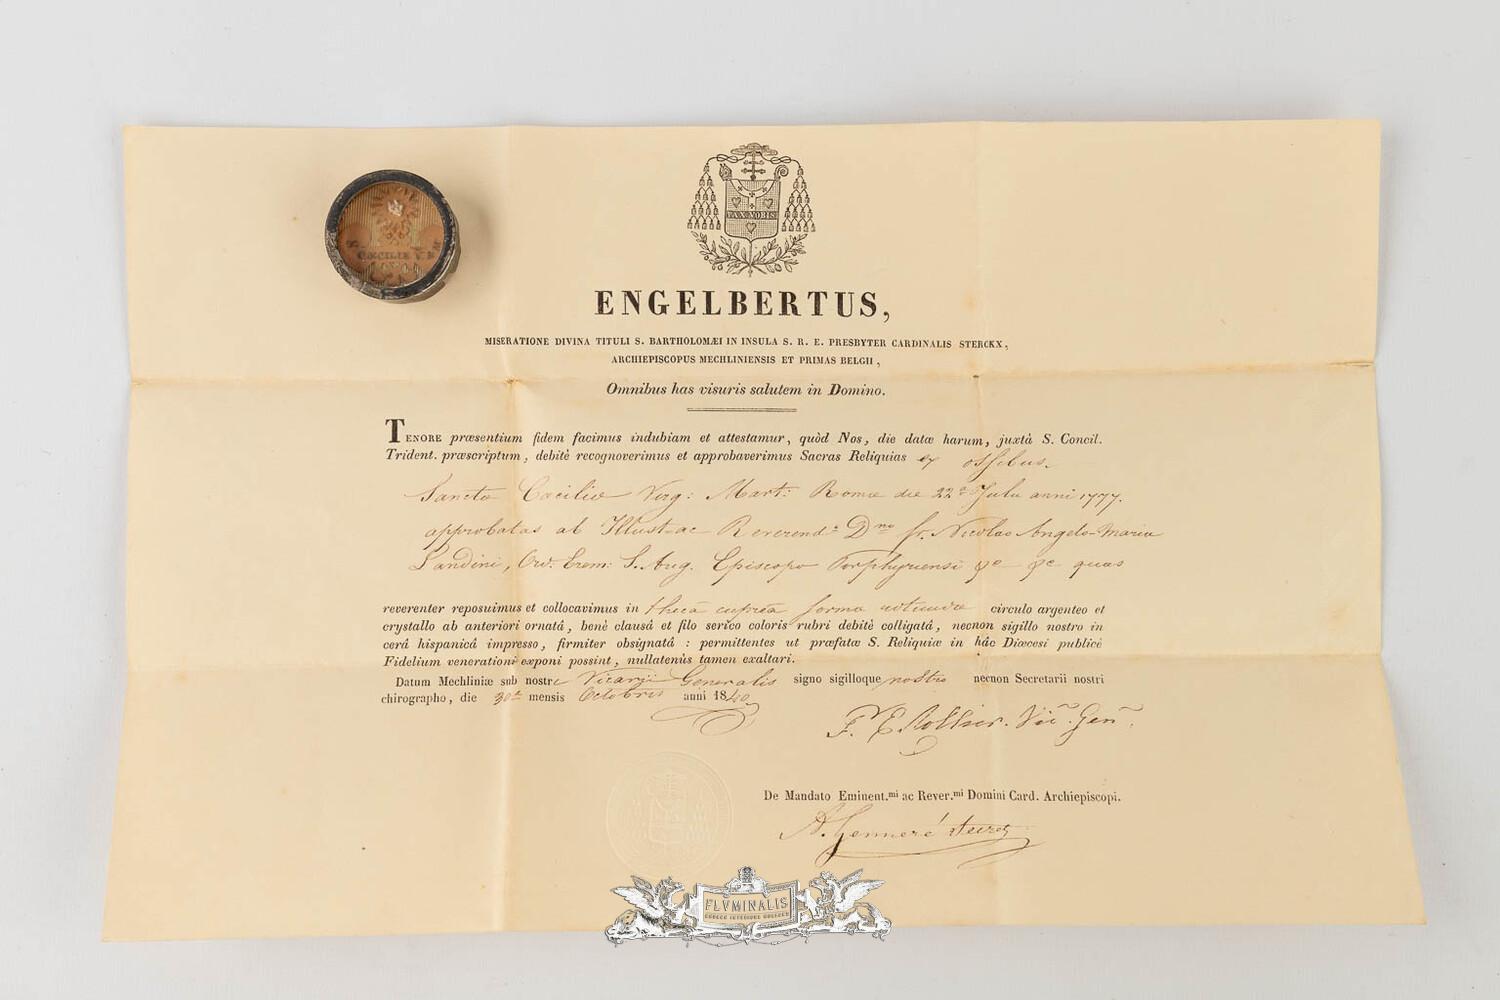 S. CŒCILIÆ V. M
PAX VOBIS
ENGELBERTUS,
MISERATIONE DIVINA TITULI S. BARTHOLOMÆI IN INSULA S. R. E. PRESBYTER CARDINALIS STERCKX,
ARCHIEPISCOPUS MECHLINIENSIS ET PRIMAS BELGII,
Omnibus has visuris salutem in Domino.
TENORE præsentium fidem facimus indubiam et attestamur, quòd Nos, die datæ harum, juxtà S. Concil.
Trident. præscriptum, debitè recognoverimus et approbaverimus Sacras Reliquias ex ossibus.
Sanctæ Cæciliæ Virg: Mart: Romæ die 22ª Julii anni 1777.
approbatas ab Illust. ac Reverendº Dno fr. Nicolao Angelo-Maria
Landini, Ord. Erem: S. Aug. Episcopo Porphyriensi &c &c quas
reverenter reposuimus et collocavimus in thecâ cupreâ formæ rotundæ circulo argenteo et
crystallo ab anteriori ornatâ, benè clausâ et filo serico coloris rubri debitè colligatâ, necnon sigillo nostro in
cerâ hispanicâ impresso, firmiter obsignatâ : permittentes ut præfatæ S. Reliquiæ in hâc Diœcesi publicè
Fidelium venerationi exponi possint, nullatenùs tamen exaltari.
Datum Mechliniæ sub nostri Vicarii Generalis signo sigilloque nostro necnon Secretarii nostri
chirographo, die 30ª mensis Octobris anni 1840
F. E. Collier. Vic. Gen.
De Mandato Eminent.mi ac Rever.mi Domini Card. Archiepiscopi.
A. Genneré secret
FLVMINALIS